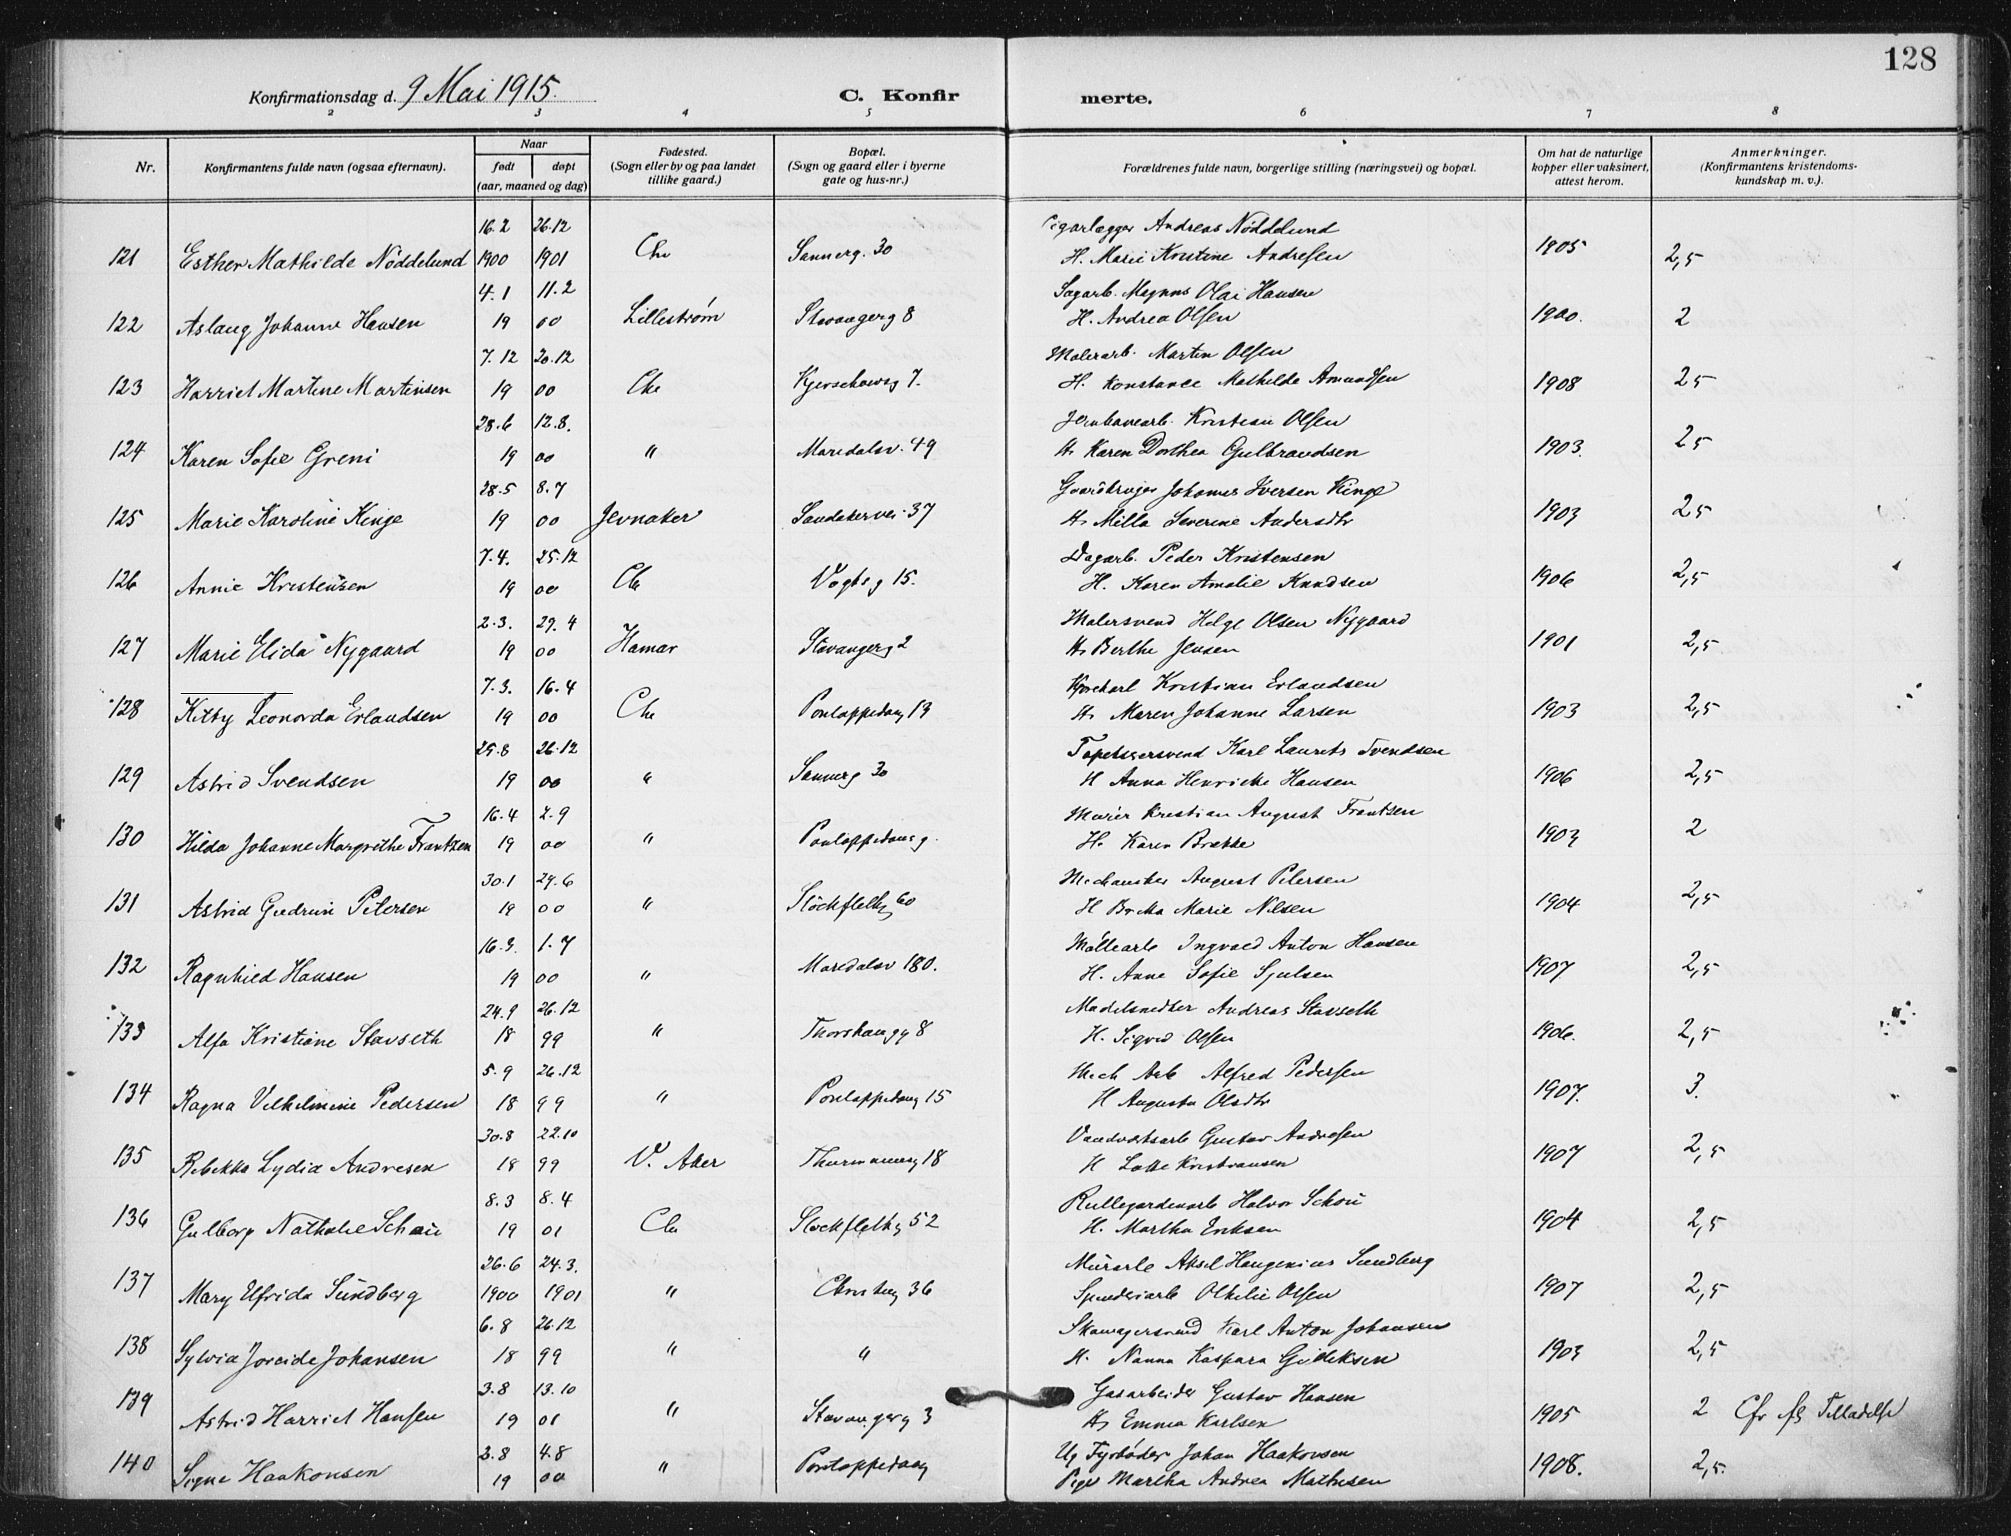 128
Konfirmationsdag d. 9 Mai 1915.
C. Konfir merte.
2 3 4 5 6 7 8
Nr. Konfirmantens fulde navn (ogsaa efternavn). Naar født døpt (aar, maaned og dag) Fødested. (Sogn eller by og paa landet tillike gaard.) Bopæl. (Sogn og gaard eller i byerne gate og hus-nr.) Forældrenes fulde navn, borgerlige stilling (næringsvei) og bopæl. Om hat de naturlige kopper eller vaksinert, attest herom. Anmerkninger. (Konfirmantens kristendoms-kundskap m. v.).
16.2 26.12 Cigarlægger Andreas Nöddelund
121 Esther Mathilde Nöddelund 1900 1901 Chr Sannerg. 30 H. Marie Kristine Andresen 1905 2,5
4.1 11.2 Sagarb. Magnus Olai Hansen
122 Aslaug Johanne Hansen 19 00 Lillestrøm Stavangerg 8 H. Andrea Olsen 1900. 2
7.12 30.12 Malerarb. Martin Olsen
123 Harriet Martine Martinsen 19 00 Chr Kjerschowsg 7. H. Konstance Mathilde Amundsen 1908 2,5
28.6 12.8. Jernbanearb. Kristian Olsen
124 Karen Sofie Greni 19 00 " Maridalsv. 49 H. Karen Dorthea Gulbrandsen 1903. 2,5
28.5 8.7 Gaardbruger Johannes Iversen Kinge
125 Marie Karoline Kinge 19 00 Jevnaker Sandakervei 37 H. Milla Severine Andersdtr 1903 2,5
7.4. 25.12 Dagarb. Peder Kristensen
126 Annie Kristensen 19 00 Chr Vogtsg 15. H. Karen Amalie Knudsen 1906 2,5
2.3. 29.4 Malersvend Helge Olsen Nygaard
127 Marie Elida Nygaard 19 00 Hamar Stavangerg 2 H. Berthe Jensen 1901 2,5
7.3. 16.4 Kjørekarl Kristian Erlandsen
128 Kitty Leonarda Erlandsen 19 00 Chr Pontoppidansg 13 H. Maren Johanne Larsen 1903 2,5
25.8 26.12 Tapetsersvend Karl Laurits Svendsen
129 Astrid Svendsen 19 00 " Sannerg 30 H Anna Henrikke Hansen 1906 2,5
16.4 2.9 Murer Kristian August Frantzen
130 Hilda Johanne Margrethe Frantzen 19 00 " Pontoppidansg. H. Karen Brække 1903 2
30.1 24.6 Mechaniker August Petersen
131 Astrid Gudrun Petersen 19 00 " Stockflethg 60 H Britta Marie Nilsen 1904 2,5
16.3. 1.7 Møllearb Ingvald Anton Hansen
132 Ragnhild Hansen 19 00 " Maridalsv 180. H. Anne Sofie Syulsen 1907 2,5
24.9 26.12 Modelsnedker Andreas Stavseth
133 Alfa Kristiane Stavseth 18 99 " Thorshaugg 8 H. Sigrid Olsen 1906. 2,5
5.9 26.12 Mech Arb Alfred Pedersen
134 Ragna Vilhelmine Pedersen 18 99 " Pontoppidansg 15 H Augusta Olsdtr 1907. 3.
30.8 22.10 Vandværksarb Gustav Andresen
135 Rebekka Lydia Andresen 18 99 V. Aker Thurmannsg 18 H Lotte Kristiansen 1907 2,5
8.3 8.4 Rullegardinarb Halvor Schou
136 Gulborg Nathalie Schou 19 01 Chr Stockflethg 52 H. Martha Eriksen 1904 2,5
26.6 24.3. Murarb Aksel Haugenius Sundberg
137 Mary Elfrida Sundberg 1900 1901 " Christieg 36 Spinderiarb Othilie Olsen 1907 2,5
6.8 26.12 Skomagersvend Karl Anton Johansen
138 Sylvia Joreide Johansen 18 99 " " H. Nanna Kaspara Gulliksen 1903 2,5
3.8 13.10 Gasarbeider Gustav Hansen
139 Astrid Harriet Hansen 19 01 " Stavangerg 3 H. Emma Karlsen 1905 2 Cfr Tilladelse
3.8 4.8 Ug Fyrbøder Johan Haakonsen
140 Signe Haakonsen 19 00 " Pontoppidansg Pige Martha Andrea Mathisen 1908. 2,5.